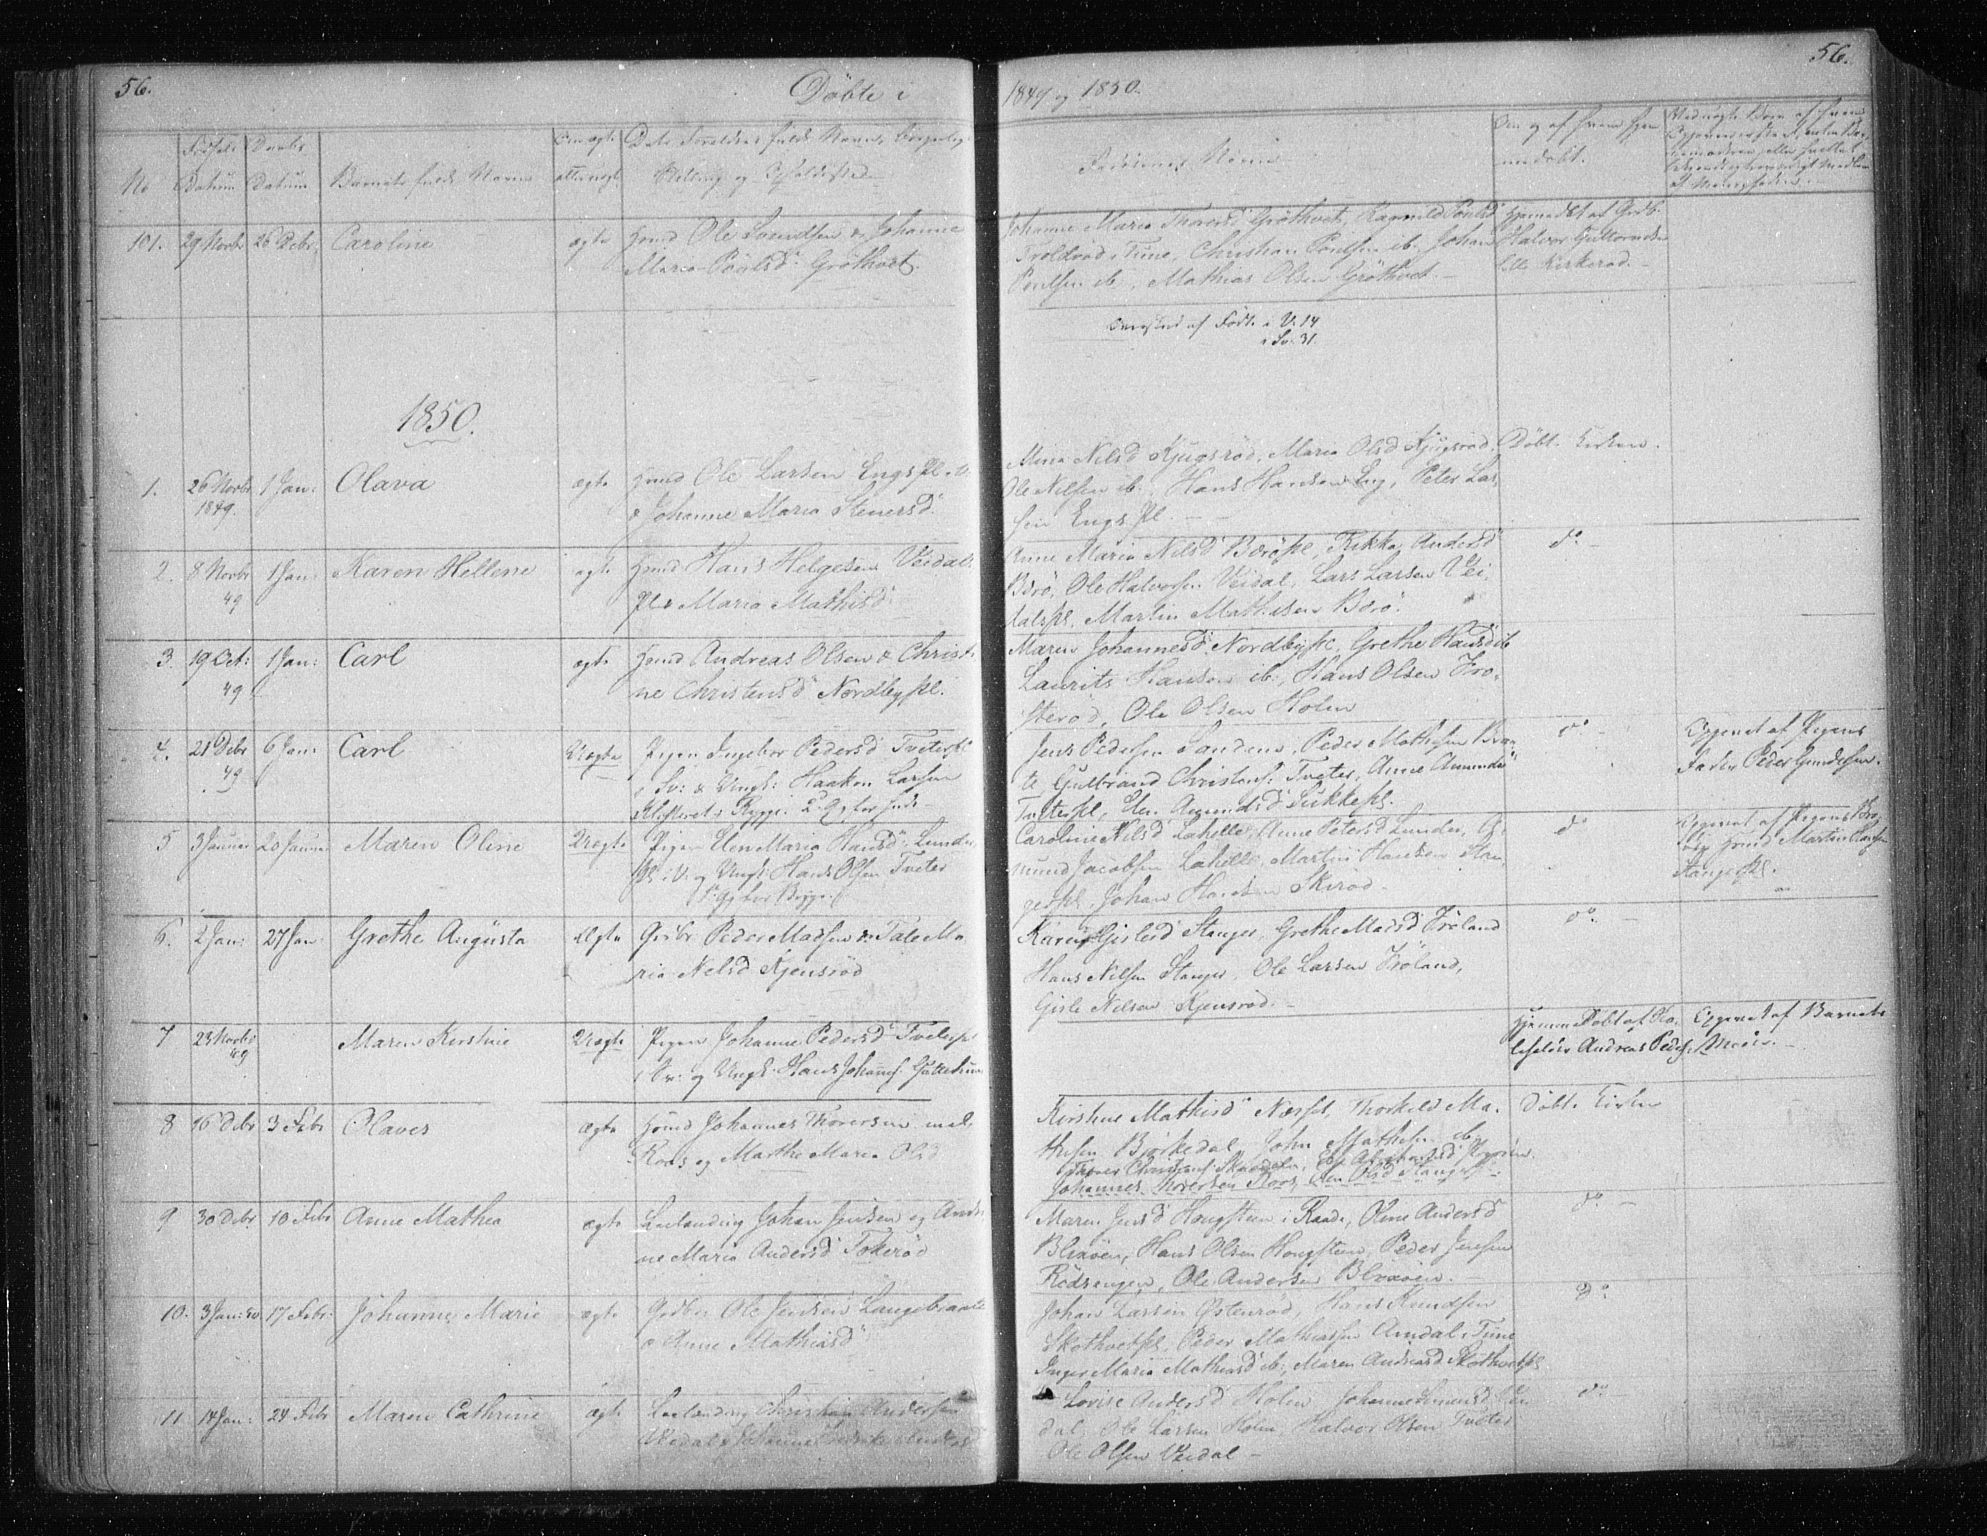 56.
Döbte i
1849 og 1850.
56.
No
Fødsels Datum
Daabs Datum
Barnets fulde Navn
Om ægte
eller uægt.
Stilling og
Faddernes Navne
Om og af hvem hjem
medøbt.
101. 29 Novbr 26 Debr. Caroline ægte Hmd Ole Svendsen & Johanne
Maria Poulsd. Gröthvet.
Johanne Maria Thoresd Gröthvet, Ragnild Poulsd
Troldvad i Tune, Christian Poulsen ib. Johan
Poulsen ib., Mathias Olsen Gröthvet.
Hjemedöbt af Grdb.
Halvor Guttormsen
lille Kirkerød.
Fødte i V. 14
i Sv. 31.
1850.
1. 26 Novbr 1849. 1 Jan: Olava ægte Hmd Ole Larsen Engs Pl. i V.
& Johanne Maria Stenersd.
Mina Nilsd Kjugsröd, Maria Olsd Kjugsröd
Ole Nilsen ib., Hans Hansen Eng, Peter Lar,
sen Engs Pl.
Döbt i Kirken.
2. 8 Novbr 49 1 Jan: Karen Hellene ægte Hmd Hans Helgesen Veidal
Pl & Maria Mathisd
Anne Maria Nilsd Børöpl, Rikka Andersd
Børö, Ole Halvorsen Veidal, Lars Larsen Vei,
dalspl, Martin Mathisen Børö.
do
3. 19 Oct: 49 1 Jan: Carl ægte Hmd Andreas Olsen & Christi
ne Christensd Nordbypl.
Maren Johannesd Nordbypl, Grethe Hansd ib
Laurits Hansen ib., Hans Olsen Fro,
steröd, Ole Olsen Holm
4. 21 Debr 49 6 Jan: Carl Uægte Pigen Ingebor Pedersd Tveterpl
i Sv: & Ungk: Haakon Larsen
Klosteret i Rygge. 2 G.
Jens Pedersen Sanden, Peder Mathisen Bra,
te Gulbrand Christens: Tveter, Anne Amunds
Tveterpl, Elen Amundsd Sukkepl.
do
Opgivet af Pigens
Fader Peder Gundersen.
5 3 Januar 20 Januar Maren Oline Uægte Pigen Elen Maria Hansd Lunde
Pl i V. og Ungk: Hans Olsen Tveter
Caroline Nilsd Lahelle, Anne Petersd Lunde, A,
mund Jacobsen Lahelle, Martin Hansen Stan
gerpl, Johan Hansen Skeröd.
do
Opgivet af Pigens Bro,
der Hmd Martin Hansen
Stangerpl.
6. 2 Jan: 27 Jan: Grethe Augusta Ægte Grdbr Peder Madsen & Tale Ma,
ria Nelsd Kjensröd
Karen Gislesd Stanger, Grethe Madsd Fröland
Hans Nilsen Stanger, Ole Larsen Fröland,
Gisle Nilsen Kjensröd.
do.
7 23 Novbr 49 Maren Kirstine Uægte Pigen Johanne Pedersd Tveterpl
i Sv: og Ungk: Hans Johans:
Hjemmedöbt af Sko,
leholder Andreas Peders:
Opgivet af Barnets
Moder.
8 16 Debr 3 Febr Olaves Ægte Hmd Johannes Thoresen
Roos og Marthe Maria Olsd
Kirstine Mathisd Næspl, Thorkild Ma,
thisen Björkedal, John Mathisen ib.
Johannes Thoresen Roos, Elen Olsd Stanger
Döbt i Kirken
9 30 Debr 10 Febr Anne Mathea ægte Leilænding Johan Jensen og Andri
ne Maria Andersd Tokeröd
Maren Jensd Hougsteen i Raade, Oline Andersd
Blixöen, Hans Olsen Hougsteen, Peder Jensen
Rödsengen, Ole Andersen Blixöen.
do
10. 3 Jan: 50 17 Febr: Johanne Marie ægte Grdbr Ole Jensen Langebraate
& Anne Mathiasd
Johan Larsen Østenröd, Hans Knudsen
Skothvetpl, Peder Mathiassen Amdal i Tune
Inger Maria Mathiasd ib., Maren Andreasd Skothvetpl
do
11 14 Jan: 24 Febr Maren Cathrine ægte Leilænding Christian Andersen
Veidal & Johanne Fredrikke
Lovise Andersd Holm Johanne Simensd Vei
dal, Ole Larsen Holm, Halvor Olsen Tveter
Ole Olsen Veidal
do